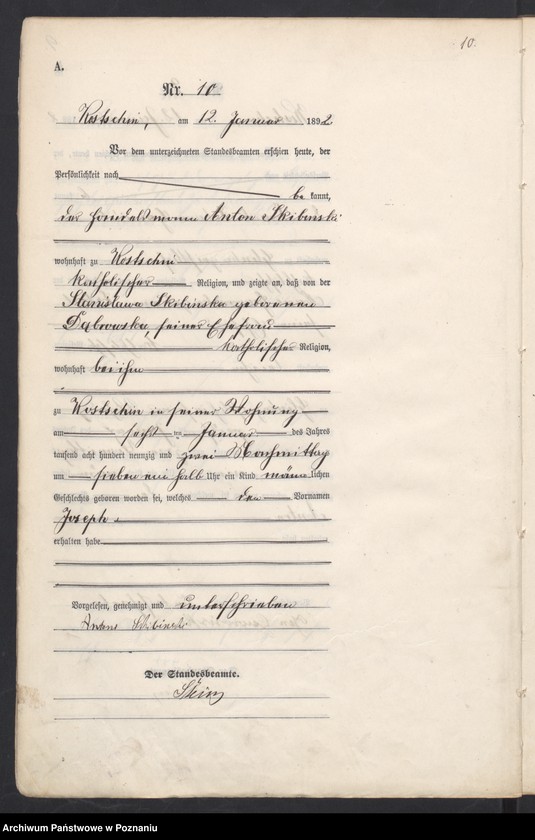 10.
A.
Nr. 10
Kostschin, am 12. Januar 1892.
Vor dem unterzeichneten Standesbeamten erschien heute, der
Persönlichkeit nach
be kannt,
der Handelsmann Anton Skibinski
wohnhaft zu Kostschin
katholischer Religion, und zeigte an, daß von der
Stanislawa Skibinska geborenen
Dąbrowska seiner Ehefrau
katholischer Religion,
wohnhaft bei ihm
zu Kostschin in seiner Wohnung
am sechsten Januar des Jahres
tausend acht hundert neunzig und zwei Nachmittag
um sieben ein halb Uhr ein Kind männlichen
Geschlechts geboren worden sei, welches den Vornamen
Joseph
erhalten habe
Vorgelesen, genehmigt und unterschrieben
Antons Skibinski
Der Standesbeamte.
Archiwum Państwowe w Poznaniu